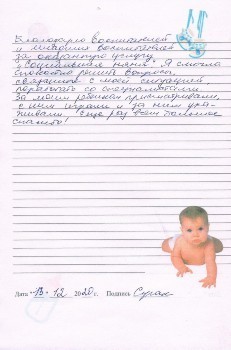 Благодарю воспитателей
и младших воспитателей
за оказанную услугу
"Социальная няня". Я смогла
спокойно решить вопросы,
связанные с моей ситуацией,
поработать со специалистами.
За моим ребенком присматривали,
с ним играли и за ним уха-
живали. Еще раз Вам большое
спасибо!
Дата "13" 12 2020 г. Подпись